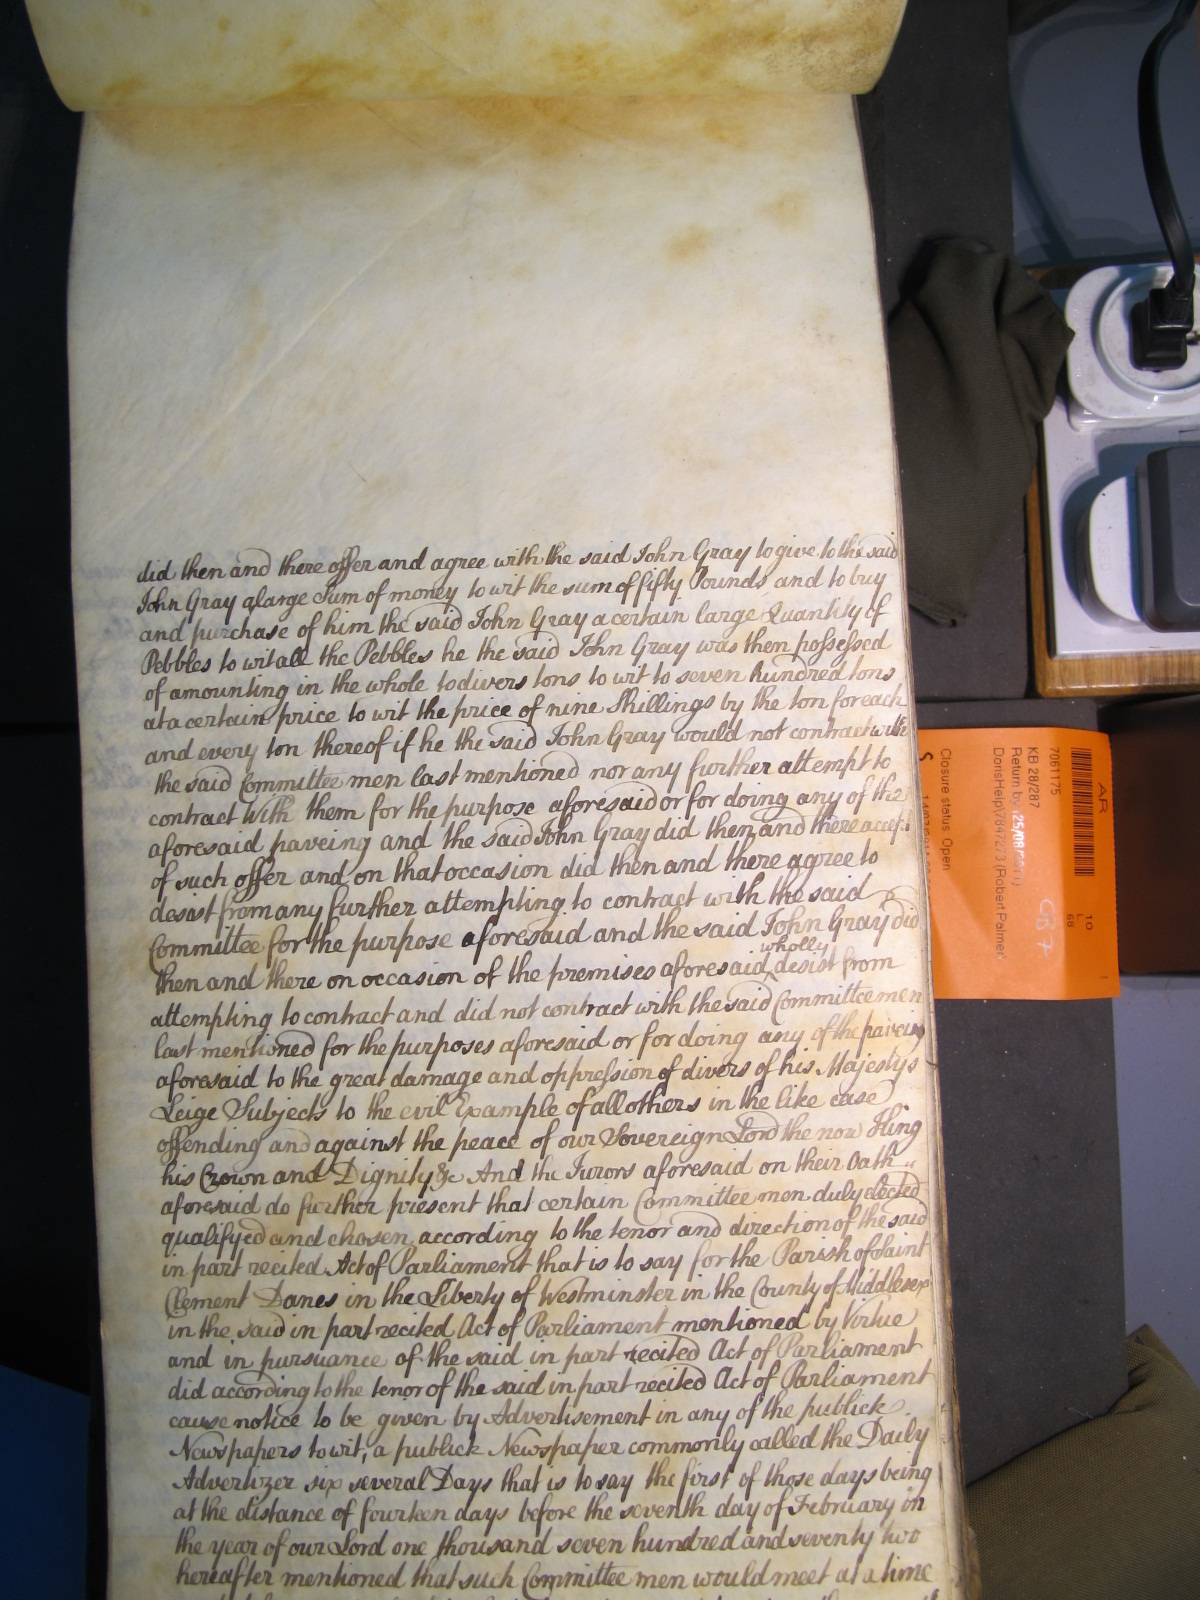 did then and there offer and agree with the said John Gray to give to the said
John Gray a large Sum of money to wit the sum of fifty Pounds and to buy
and purchase of him the said John Gray a certain large Quantity of
Pebbles to wit all the Pebbles he the said John Gray was then possessed
of amounting in the whole to divers tons to wit to seven hundred tons
at a certain price to wit the price of nine Shillings by the ton for each
and every ton thereof if he the said John Gray would not contract with
the said Committee men last mentioned nor any further attempt to
contract With them for the purpose aforesaid or for doing any of the
aforesaid paveing and the said John Gray did then and there accept
of such offer and on that occasion did then and there agree to
desist from any further attempting to contract with the said
Committee for the purpose aforesaid and the said John Gray did
wholly
then and there on occasion of the premises aforesaid desist from
attempting to contract and did not contract with the said Committee men
last mentioned for the purposes aforesaid or for doing any of the paveing
aforesaid to the great damage and oppression of divers of his Majestys
Leige Subjects to the evil Example of all others in the like case
offending and against the peace of our Sovereign Lord the now King
his Crown and Dignity &c And the Jurors aforesaid on their Oath
aforesaid do further present that certain Committee men duly elected
qualifyed and chosen according to the tenor and direction of the said
in part recited Act of Parliament that is to say for the Parish of Saint
Clement Danes in the Liberty of Westminster in the County of Middlesex
in the said in part recited Act of Parliament mentioned by Virtue
and in pursuance of the said in part recited Act of Parliament
did according to the tenor of the said in part recited Act of Parliament
cause notice to be given by Advertisement in any of the publick
Newspapers to wit, a publick Newspaper commonly called the Daily
Advertizer six several Days that is to say the first of those days being
at the distance of fourteen days before the seventh day of February in
the year of our Lord one thousand seven hundred and seventy two
hereafter mentioned that such Committee men would meet at a time
AR
10
L
68
7061175
KB 28/287
Return by (25/08/2011)
DorisHelp(7847273 (Robert Palmer)
Closure status Open
S